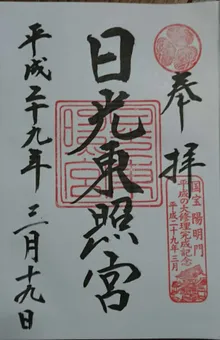 奉拝
国宝 陽明門
平成の大修理完成記念
平成二十九年三月
日光東照宮
平成二十九年 三月十九日